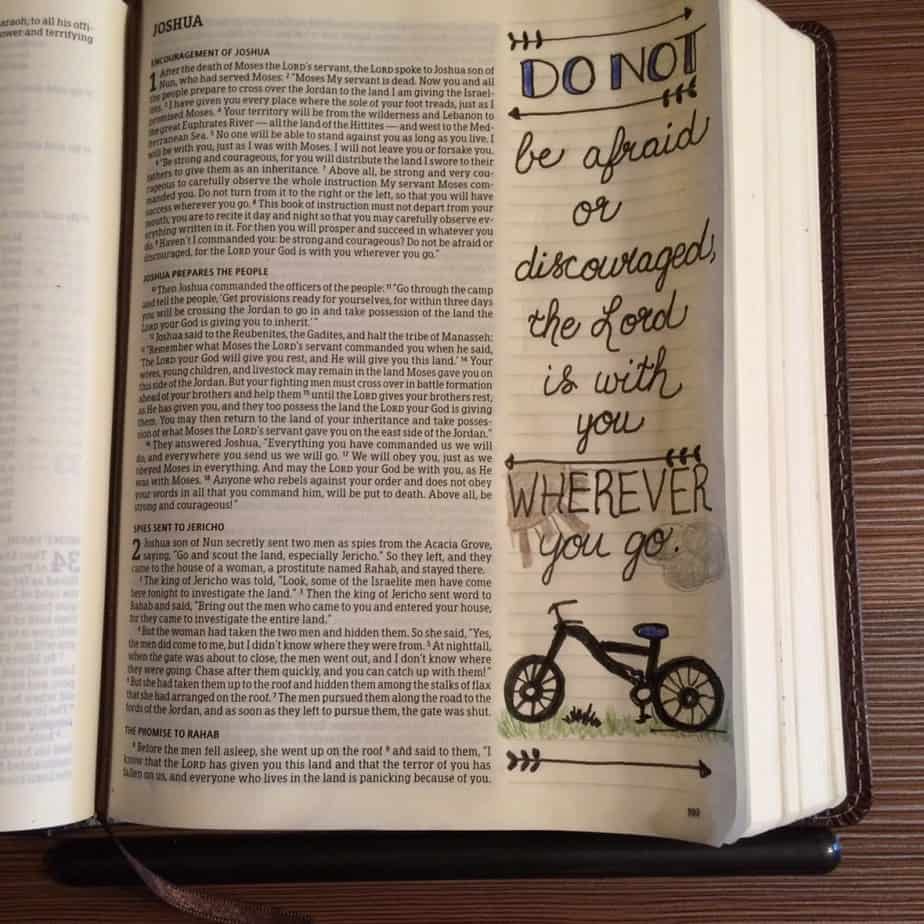 araoh, to all his offi-
ower and terrifying
JOSHUA
ENCOURAGEMENT OF JOSHUA
1 After the death of Moses the LORD's servant, the LORD spoke to Joshua son of
Nun, who had served Moses: 2 "Moses My servant is dead. Now you and all
the people prepare to cross over the Jordan to the land I am giving the Israel-
ites. 3 I have given you every place where the sole of your foot treads, just as I
promised Moses. 4 Your territory will be from the wilderness and Lebanon to
the great Euphrates River — all the land of the Hittites — and west to the Med-
iterranean Sea. 5 No one will be able to stand against you as long as you live. I
will be with you, just as I was with Moses. I will not leave you or forsake you.
6 "Be strong and courageous, for you will distribute the land I swore to their
fathers to give them as an inheritance. 7 Above all, be strong and very cou-
rageous to carefully observe the whole instruction My servant Moses com-
manded you. Do not turn from it to the right or the left, so that you will have
success wherever you go. 8 This book of instruction must not depart from your
mouth; you are to recite it day and night so that you may carefully observe ev-
erything written in it. For then you will prosper and succeed in whatever you
do. 9 Haven't I commanded you: be strong and courageous? Do not be afraid or
discouraged, for the LORD your God is with you wherever you go."
JOSHUA PREPARES THE PEOPLE
10 Then Joshua commanded the officers of the people: 11 "Go through the camp
and tell the people, 'Get provisions ready for yourselves, for within three days
you will be crossing the Jordan to go in and take possession of the land the
LORD your God is giving you to inherit.'"
12 Joshua said to the Reubenites, the Gadites, and half the tribe of Manasseh:
13 "Remember what Moses the LORD's servant commanded you when he said,
'The LORD your God will give you rest, and He will give you this land.' 14 Your
wives, young children, and livestock may remain in the land Moses gave you on
this side of the Jordan. But your fighting men must cross over in battle formation
ahead of your brothers and help them 15 until the LORD gives your brothers rest,
as He has given you, and they too possess the land the LORD your God is giving
them. You may then return to the land of your inheritance and take posses-
sion of what Moses the LORD's servant gave you on the east side of the Jordan."
16 They answered Joshua, "Everything you have commanded us we will
do, and everywhere you send us we will go. 17 We will obey you, just as we
obeyed Moses in everything. And may the LORD your God be with you, as He
was with Moses. 18 Anyone who rebels against your order and does not obey
your words in all that you command him, will be put to death. Above all, be
strong and courageous!"
SPIES SENT TO JERICHO
2 Joshua son of Nun secretly sent two men as spies from the Acacia Grove,
saying, "Go and scout the land, especially Jericho." So they left, and they
came to the house of a woman, a prostitute named Rahab, and stayed there.
2 The king of Jericho was told, "Look, some of the Israelite men have come
here tonight to investigate the land." 3 Then the king of Jericho sent word to
Rahab and said, "Bring out the men who came to you and entered your house,
for they came to investigate the entire land."
4 But the woman had taken the two men and hidden them. So she said, "Yes,
the men did come to me, but I didn't know where they were from. 5 At nightfall,
when the gate was about to close, the men went out, and I don't know where
they were going. Chase after them quickly, and you can catch up with them!"
6 But she had taken them up to the roof and hidden them among the stalks of flax
that she had arranged on the roof. 7 The men pursued them along the road to the
fords of the Jordan, and as soon as they left to pursue them, the gate was shut.
THE PROMISE TO RAHAB
8 Before the men fell asleep, she went up on the roof 9 and said to them, "I
know that the LORD has given you this land and that the terror of you has
fallen on us, and everyone who lives in the land is panicking because of you.
DO NOT
be afraid
or
discouraged,
the Lord
is with
you
WHEREVER
you go.